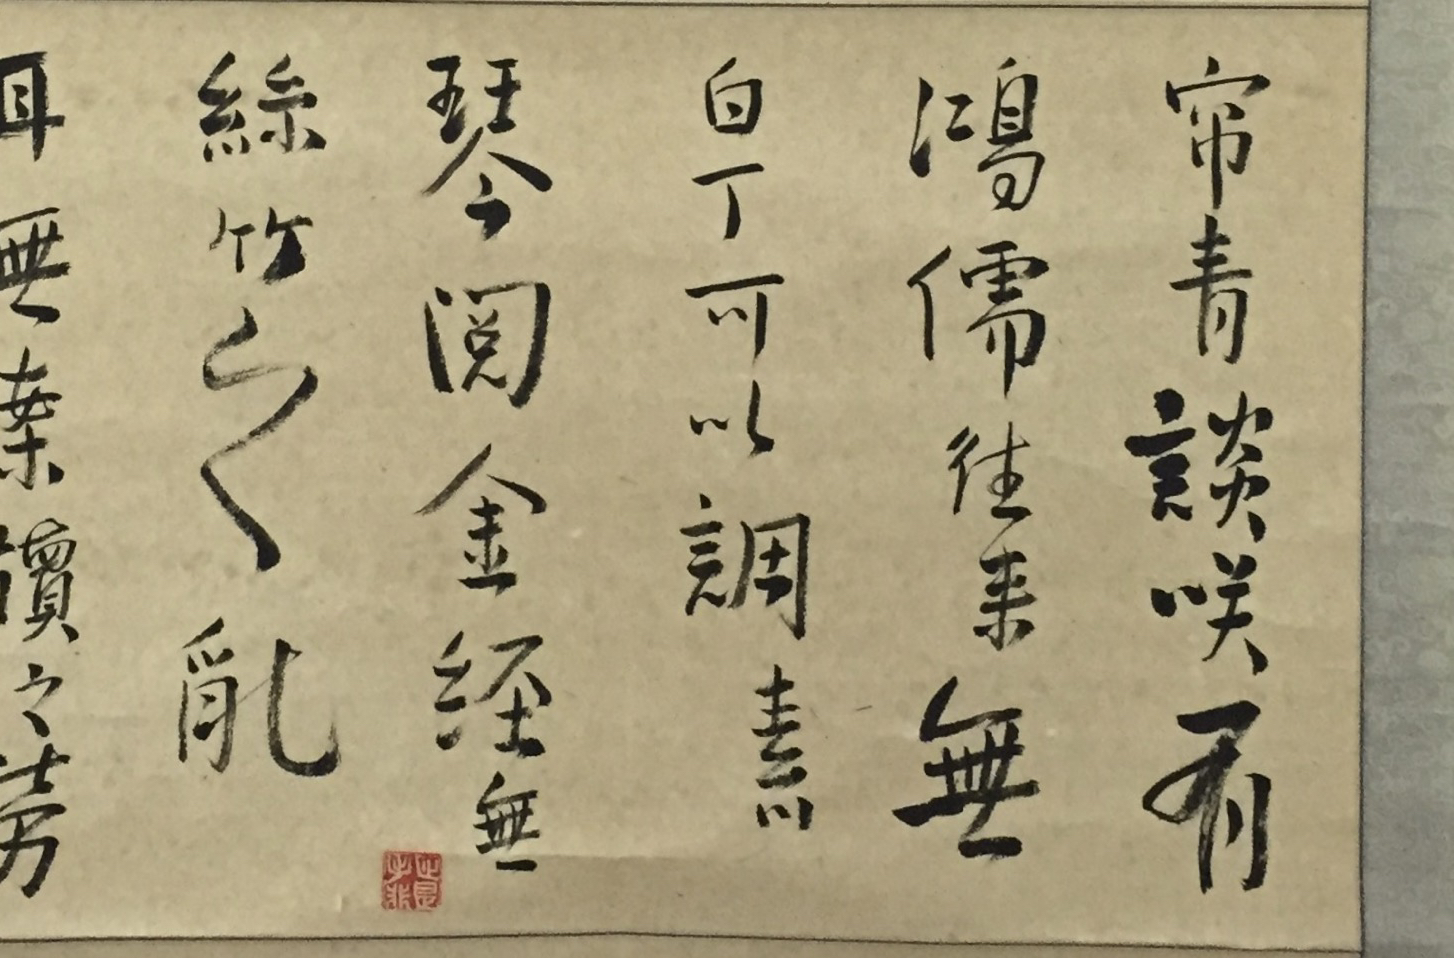 帘青談咲有
鴻儒往来無
白丁可以調素
琴閲金経無
絲竹之亂
耳無案牘之勞